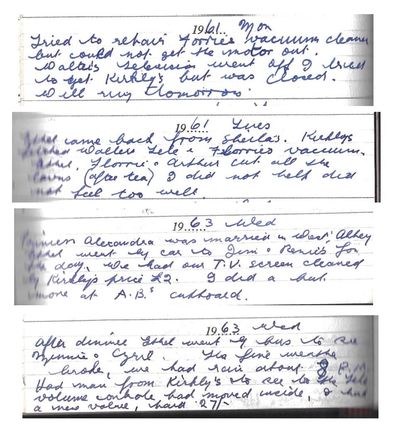 1961. Mon
Tried to repair Florries vacuum cleaner
but could not get the motor out.
Walters television went off I tried
to get Kirkby's but was closed.
Will ring tomorrow.
1961 Tues
Ethel came back from Sheila's. Kirkbys
Walters Tele & Florries vacuum.
Ethel, Florrie & Arthur cut all the
lawns (after tea) I did not help did
not feel too well
1963 Wed
Princess Alexandra was married in West. Abbey
Ethel went by car to Jim & Renie's for
the day, we had our T.V. screen cleaned
by Kirkby's price £2. I did a bit
more at A.B's cupboard.
1963 Wed
After dinner Ethel went by bus to see
Minnie & Cyril. The fine weather
broke, we had rain about 8 P.M.
Had man from Kirkby's to see to the Tele
volume control, had moved inside & had
a new valve, paid 27/-